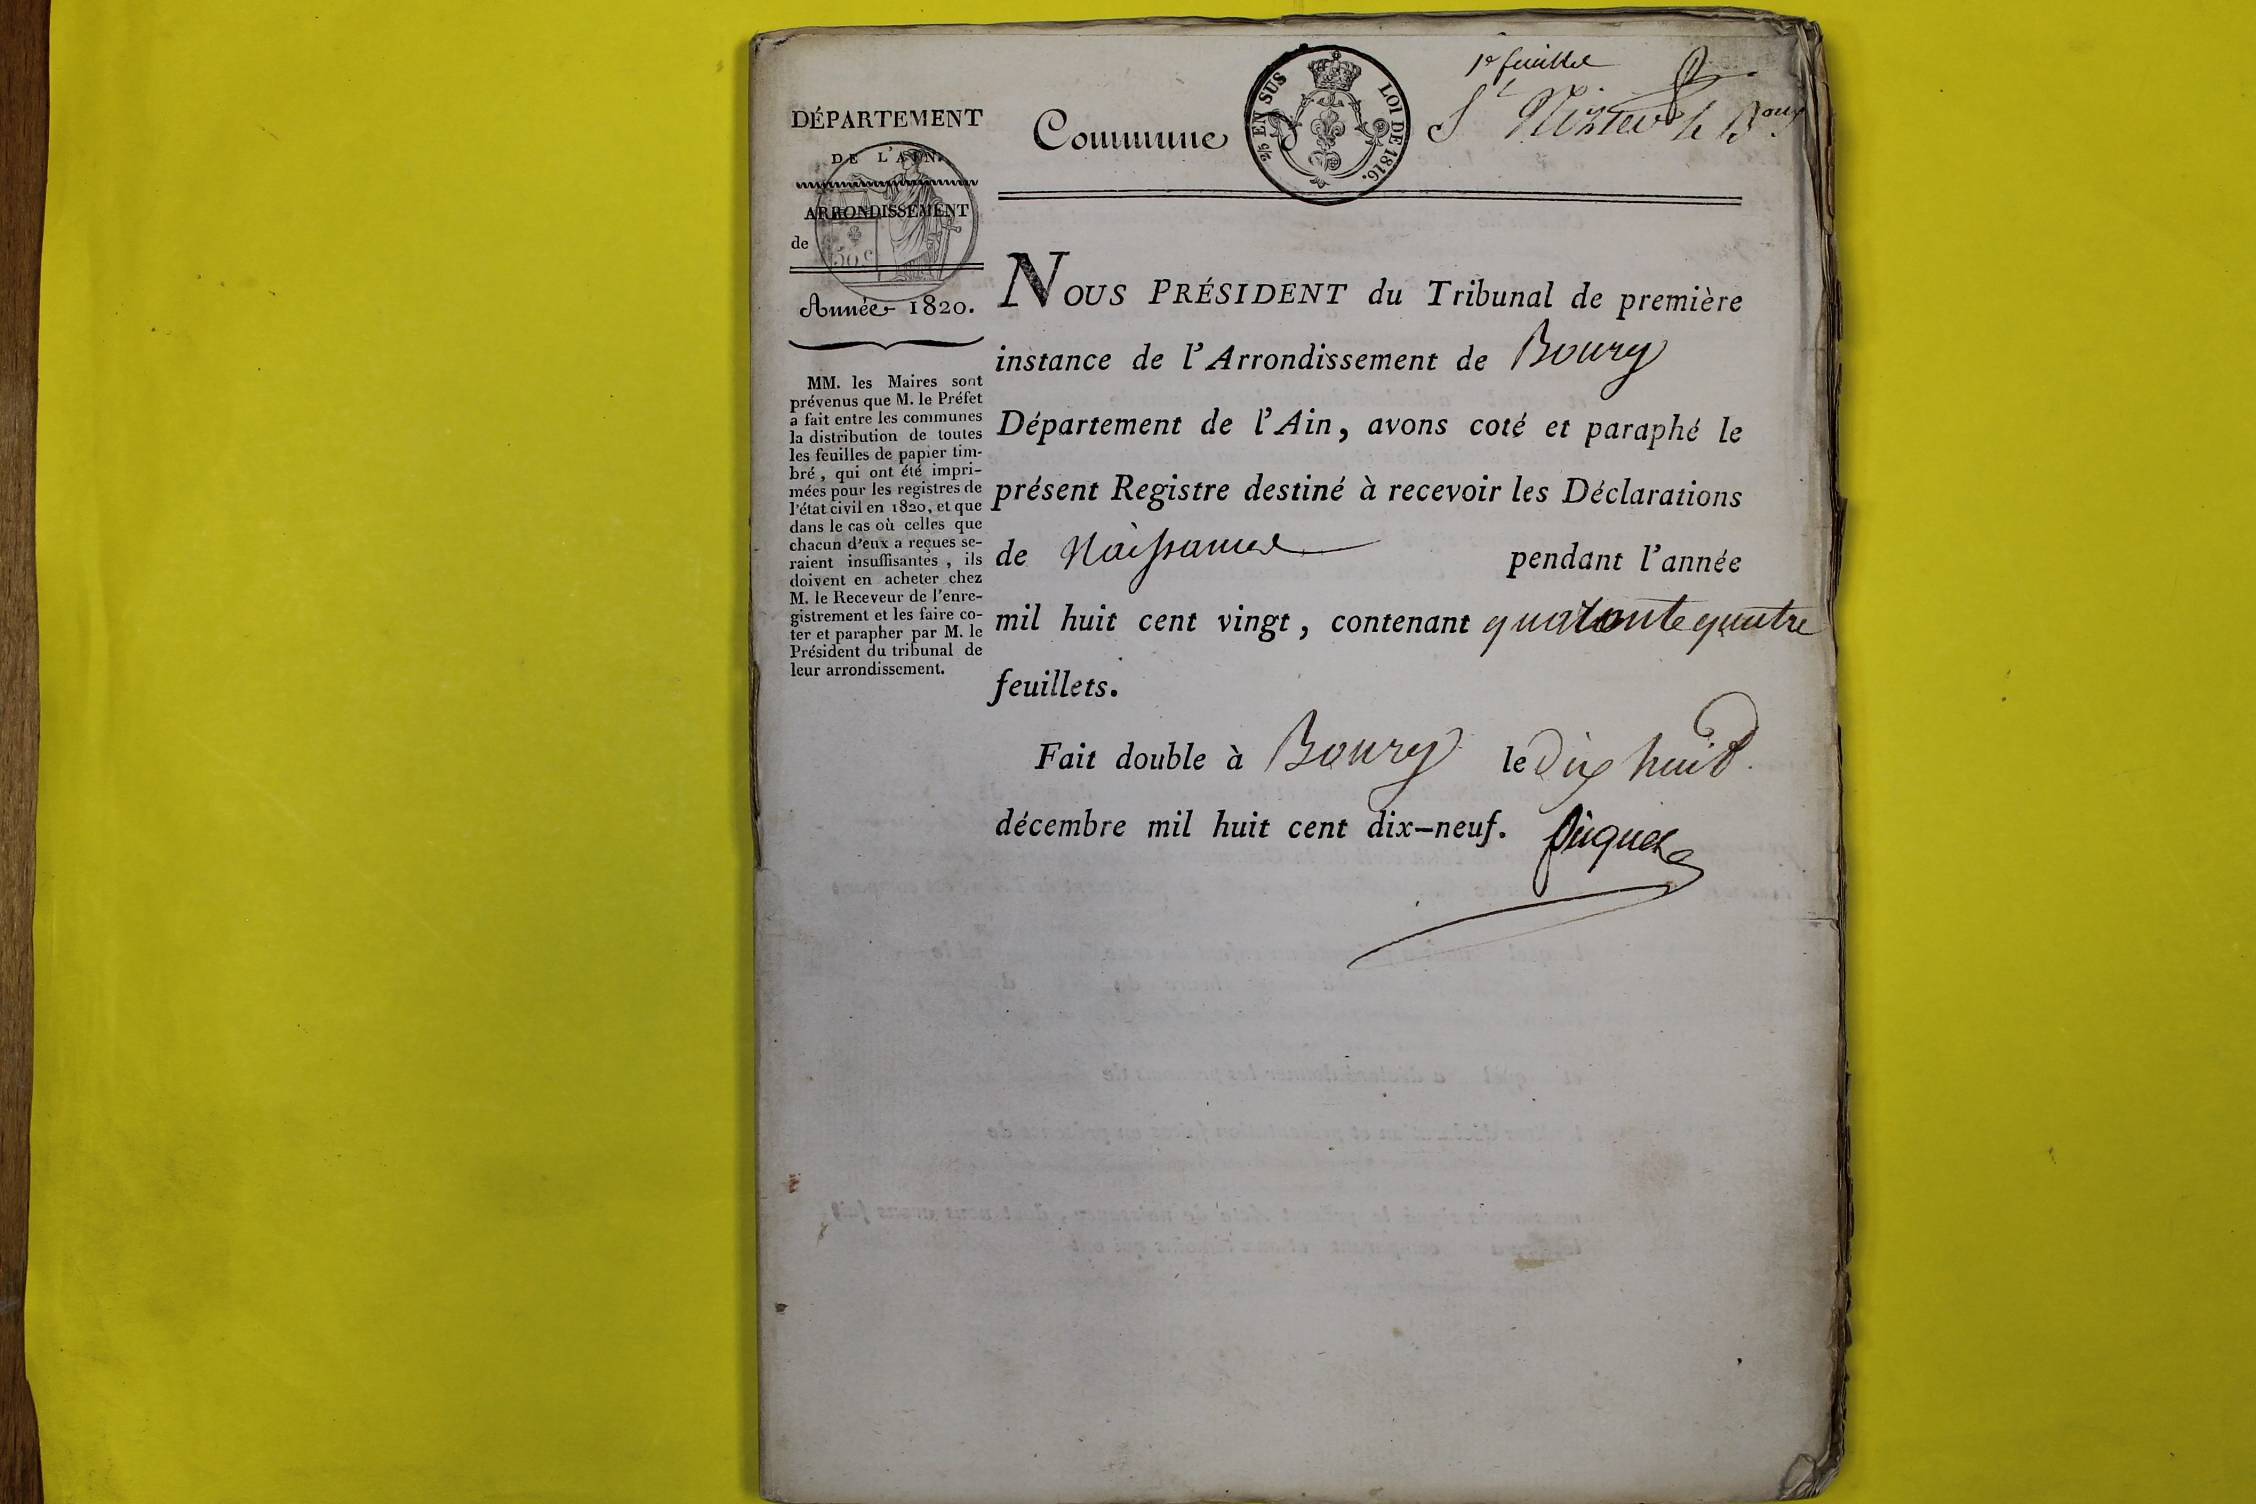 1er feuillet
DÉPARTEMENT
DE L'AIN.
ARRONDISSEMENT
de
Année 1820.
Commune de St Nizier le Boux
2/5 EN SUS
LOI DE 1816.
50 c
MM. les Maires sont
prévenus que M. le Préfet
a fait entre les communes
la distribution de toutes
les feuilles de papier tim-
bré, qui ont été impri-
mées pour les registres de
l'état civil en 1820, et que
dans le cas où celles que
chacun d'eux a reçues se-
raient insuffisantes, ils
doivent en acheter chez
M. le Receveur de l'enre-
gistrement et les faire co-
ter et parapher par M. le
Président du tribunal de
leur arrondissement.
NOUS PRÉSIDENT du Tribunal de première
instance de l'Arrondissement de Bourg
Département de l'Ain, avons coté et paraphé le
présent Registre destiné à recevoir les Déclarations
de Naissance pendant l'année
mil huit cent vingt, contenant quarante quatre
feuillets.
Fait double à Bourg le dix huit
décembre mil huit cent dix-neuf.